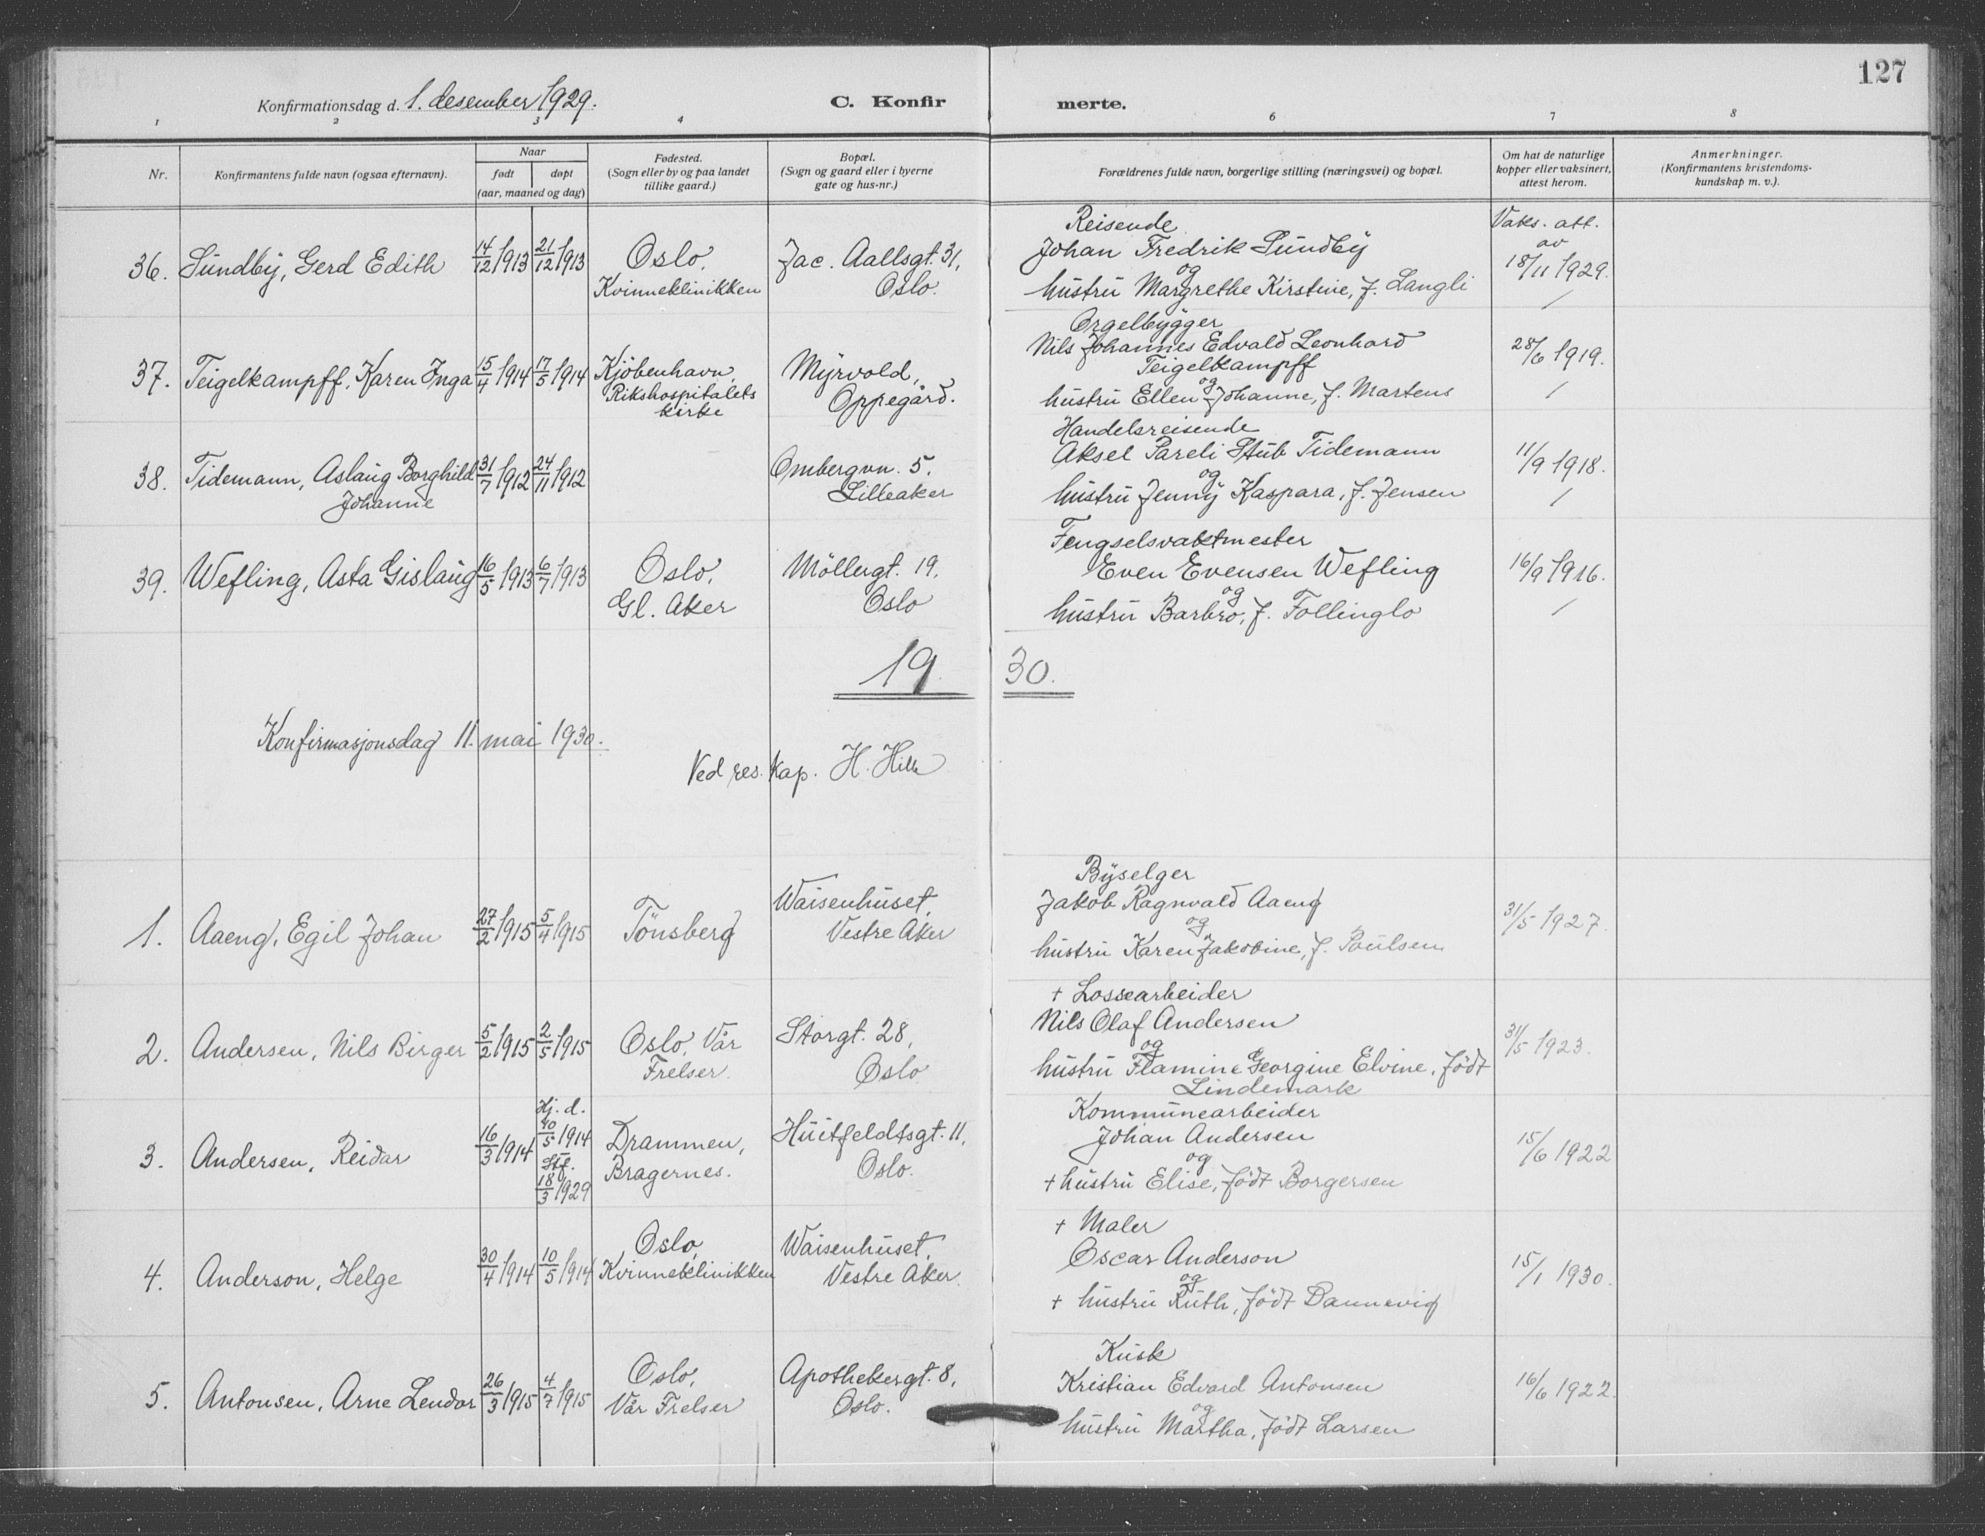 127
Konfirmationsdag d. 1. desember 1929.
C. Konfirmerte.
1 2 3 4 6 7 8
Nr.
Konfirmantens fulde navn (ogsaa efternavn).
Naar
født
døpt
(aar, maaned og dag)
Fødested.
(Sogn eller by og paa landet
tillike gaard.)
Bopæl.
(Sogn og gaard eller i byerne
gate og hus-nr.)
Forældrenes fulde navn, borgerlige stilling (næringsvei) og bopæl.
Om hat de naturlige
kopper eller vaksinert,
attest herom.
Anmerkninger.
(Konfirmantens kristendoms-
kundskap m. v.).
36. Sundby, Gerd Edith
14/12 1913
21/12 1913
Oslo,
Kvinneklinikken
Jac. Aallsgt. 31,
Oslo.
Reisende
Johan Fredrik Sundby
og
hustru Margrethe Kirstine, f. Langli
Vaks. att.
av
18/11 1929.
37. Teigelkampff, Karen Inga
15/4 1914
17/5 1914
Kjöbenhavn,
Rikshospitalets
kirke
Myrvold,
Oppegård.
Orgelbygger
Nils Johannes Edvald Leonhard
Teigelkampff
og
hustru Ellen Johanne, f. Martens
28/6 1919.
38. Tidemann, Aslaug Borghild
Johanne
31/7 1912
24/11 1912
Ombergvn. 5.
Lilleaker
Handelsreisende
Aksel Pareli Stub Tidemann
og
hustru Jenny Kaspara, f. Jensen
11/9 1918.
39. Wefling, Asta Gislaug
16/5 1913
6/7 1913
Oslo,
Gl. Aker
Möllergt. 19,
Oslo
Fengselsvaktmester
Even Evensen Wefling
og
hustru Barbro, f. Follinglo
16/9 1916.
19 30.
Konfirmasjonsdag 11. mai 1930.
Ved res. kap. H. Hille
1. Aaeng, Egil Johan
27/2 1915
5/4 1915
Tönsberg
Waisenhuset,
Vestre Aker
Byselger
Jakob Ragnvald Aaeng
og
hustru Karen Jakobine, f. Poulsen
31/5 1927.
2. Andersen, Nils Birger
5/2 1915
2/5 1915
Oslo, Vår
Frelser.
Storgt. 28,
Oslo
+ Lossearbeider
Nils Olaf Andersen
og
hustru Flamine Georgine Elvine, født
Lindemark
31/5 1923.
3. Andersen, Reidar
16/3 1914
Hj. d.
10/5 1914
Stf.
18/3 1929
Drammen,
Bragernes.
Huitfeldtsgt. 11,
Oslo.
Kommunearbeider
Johan Andersen
og
+ hustru Elise, født Borgersen
15/6 1922
4. Anderson, Helge
30/4 1914
10/5 1914
Oslo,
Kvinneklinikken
Waisenhuset,
Vestre Aker.
+ Maler
Oscar Anderson
og
+ hustru Ruth, født Dannevig
15/1 1930.
5. Antonsen, Arne Lendor
26/3 1915
4/7 1915
Oslo,
Vår Frelser
Apothekergt. 8,
Oslo.
Kusk
Kristian Edvard Antonsen
og
hustru Martha, født Larsen
16/6 1922.